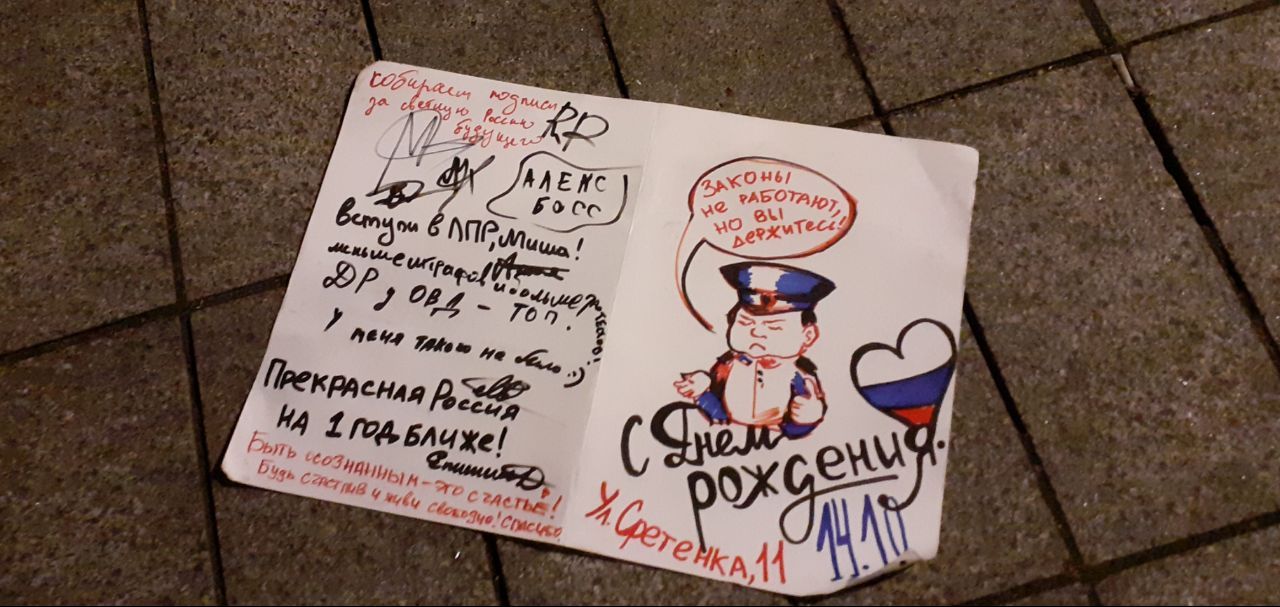 собираем подписи
за светлую Россию
будущего
RR
АЛЕКС
БОСС
Вступи в ЛПР, Миша!
меньше штрафов и больше
ДР у ОВД - ТОП.
У меня такого не было :)
Прекрасная Россия
на 1 год ближе!
Быть осознанным - это счастье!
Будь счастлив и живи свободно! Спасибо
Законы
не работают,
но вы
держитесь!
С Днём
рождения.
Ул. Сретенка, 11
14.10